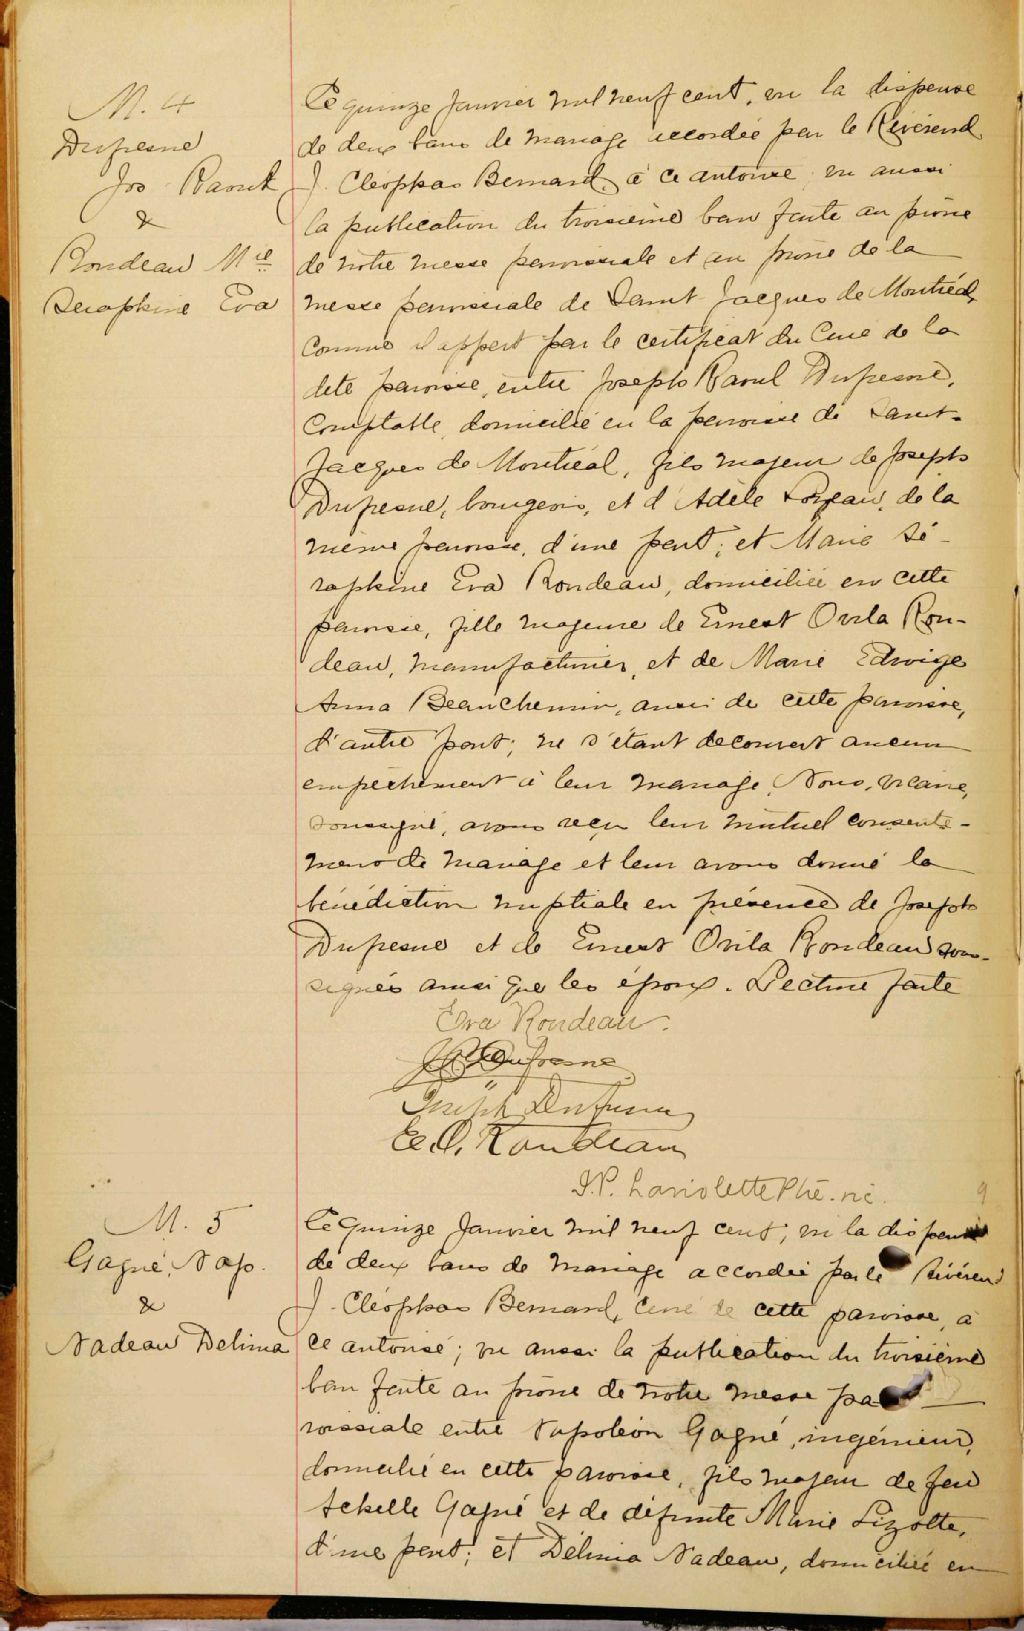 M. 4
Dufresne
Jos Raoul
&
Rondeau Mie
Seraphine Eva
Le quinze Janvier mil neuf cent, vu la dispense
de deux bans de mariage accordée par le Révérend
J. Cléophas Bernard, à ce autorisé, vu aussi
la publication du troisième ban faite au prône
de notre messe paroissiale et au prône de la
messe paroissiale de Saint Jacques de Montréal,
comme il appert par le certificat du Curé de la
dite paroisse, entre Joseph Raoul Dufresne,
Comptable, domicilié en la paroisse de Saint-
Jacques de Montréal, fils majeur de Joseph
Dufresne, bourgeois, et d'Adèle de la
même paroisse, d'une part; et Marie Sé-
raphine Eva Rondeau, domiciliée en cette
paroisse, fille majeure de Ernest Ovila Ron-
deau, manufacturier, et de Marie Edwige
Anna Beauchemin, aussi de cette paroisse,
d'autre part; ne s'étant découvert aucun
empêchement à leur mariage, Nous, vicaire,
soussigné, avons reçu leur mutuel consente-
ment de mariage et leur avons donné la
bénédiction nuptiale en présence de Joseph
Dufresne et de Ernest Ovila Rondeau sous-
signés ainsi que les époux. Lecture faite
Eva Rondeau.
J R Dufresne
Joseph Dufresne
E. O. Rondeau
J.P. Lariolette Ptre. vic.
9
M. 5
Gagné, Nap.
&
Nadeau Delima
Le quinze Janvier mil neuf cent; vu la dispense
de deux bans de mariage accordée par le Révérend
J. Cléophas Bernard, curé de cette paroisse, à
ce autorisé; vu aussi la publication du troisième
ban faite au prône de notre messe pa
roissiale entre Napoléon Gagné, ingénieur,
domicilié en cette paroisse, fils majeur de feu
Achille Gagné et de défunte Marie Lizotte,
d'une part; et Délima Nadeau, domiciliée en